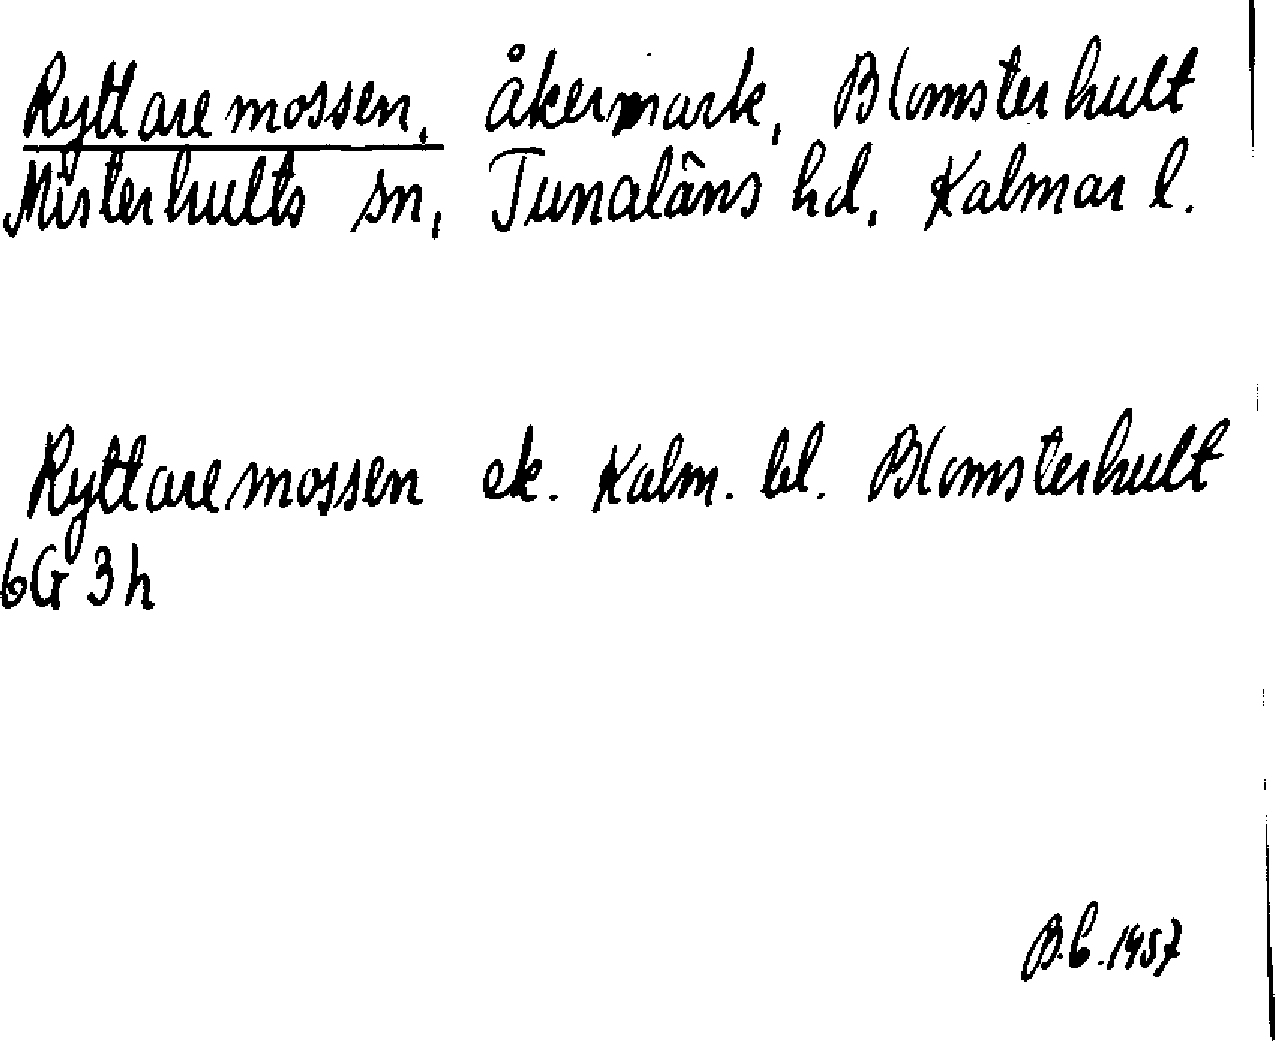 Ryttaremossen, åkermark, Blomsterhult
Misterhults sn, Tunaläns hd, Kalmar l.
Ryttaremossen ek. Kalm. bl. Blomsterhult
6G 3h
B.C. 1957